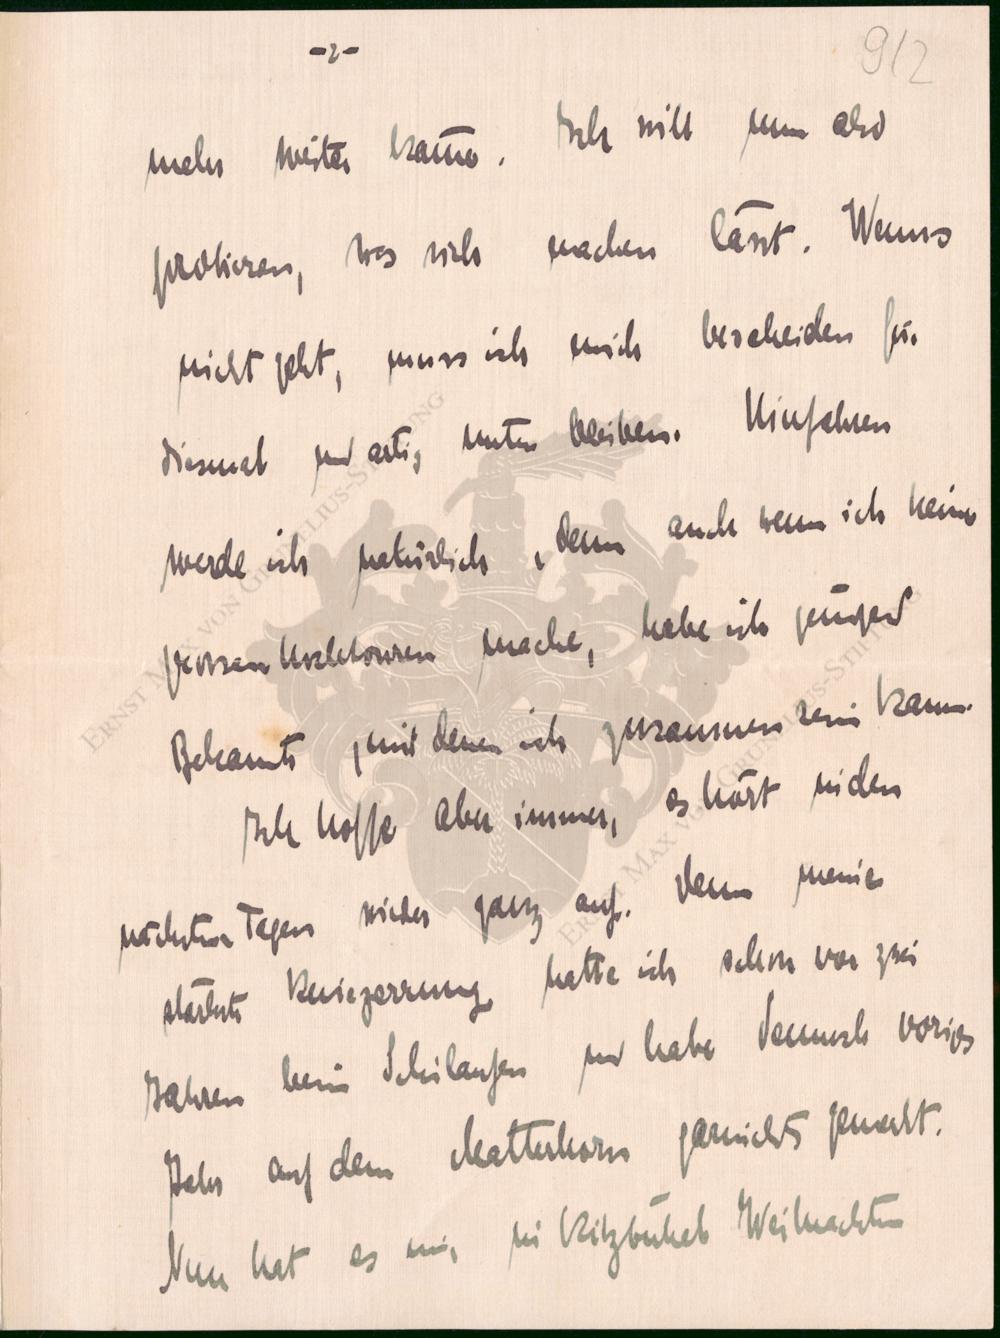 -2-
9/2
mehr weiter kann. Ich will nun also
probieren, was sich machen lässt. Wenns
nicht geht, muss ich mich bescheiden für
diesmal und artig unten bleiben. Hinfahren
werde ich natürlich, denn auch wenn ich keine
grossen Hochtouren mache, habe ich genügend
Bekannte, mit denen ich zusammen sein kann.
Ich hoffe aber immer, es hört in den
nächsten Tagen wieder ganz auf. Denn meine
stärkste Kniezerrung hatte ich schon vor zwei
Jahren beim Schilaufen und habe dennoch voriges
Jahr auf dem Matterhorn garnichts gemerkt.
Nun hat es mir in Kitzbühel Weihnachten
Ernst Max von Grunelius-Stiftung
Ernst Max von Grunelius-Stiftung